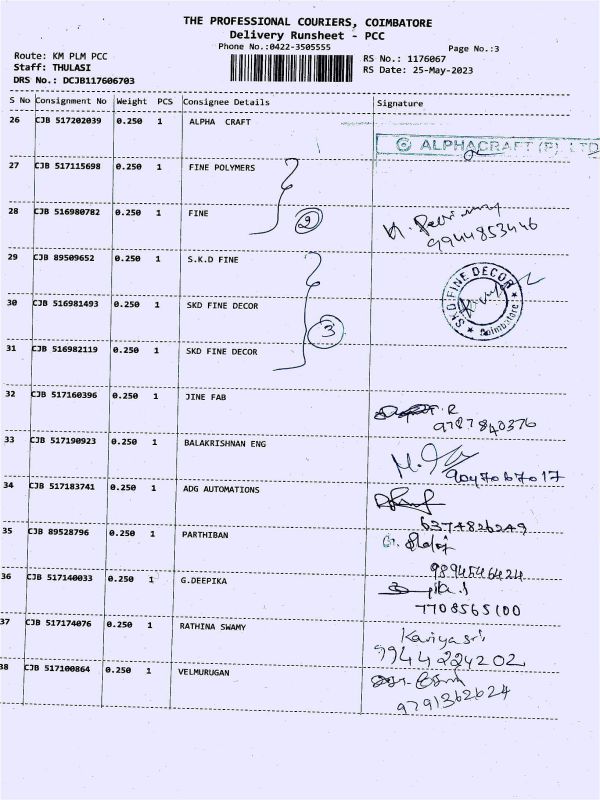 THE PROFESSIONAL COURIERS, COIMBATORE
Delivery Runsheet - PCC
Phone No.:0422-3505555
Page No.:3
Route: KM PLM PCC
RS No.: 1176067
Staff: THULASI
RS Date: 25-May-2023
DRS No.: DCJB117606703
S No Consignment No Weight PCS Consignee Details Signature
26 CJB 517202039 0.250 1 ALPHA CRAFT
ALPHACRAFT (P) LTD
27 CJB 517115698 0.250 1 FINE POLYMERS
28 CJB 516980782 0.250 1 FINE
2
9944853446
29 CJB 89509652 0.250 1 S.K.D FINE
SKD FINE DECOR
Coimbatore
30 CJB 516981493 0.250 1 SKD FINE DECOR
3
31 CJB 516982119 0.250 1 SKD FINE DECOR
32 CJB 517160396 0.250 1 JINE FAB
9787840376
33 CJB 517190923 0.250 1 BALAKRISHNAN ENG
9047067017
34 CJB 517183741 0.250 1 ADG AUTOMATIONS
6374826249
35 CJB 89528796 0.250 1 PARTHIBAN
9894546424
36 CJB 517140033 0.250 1 G.DEEPIKA
7708565100
37 CJB 517174076 0.250 1 RATHINA SWAMY
Kaviyasri
9944224202
38 CJB 517100864 0.250 1 VELMURUGAN
9791362624